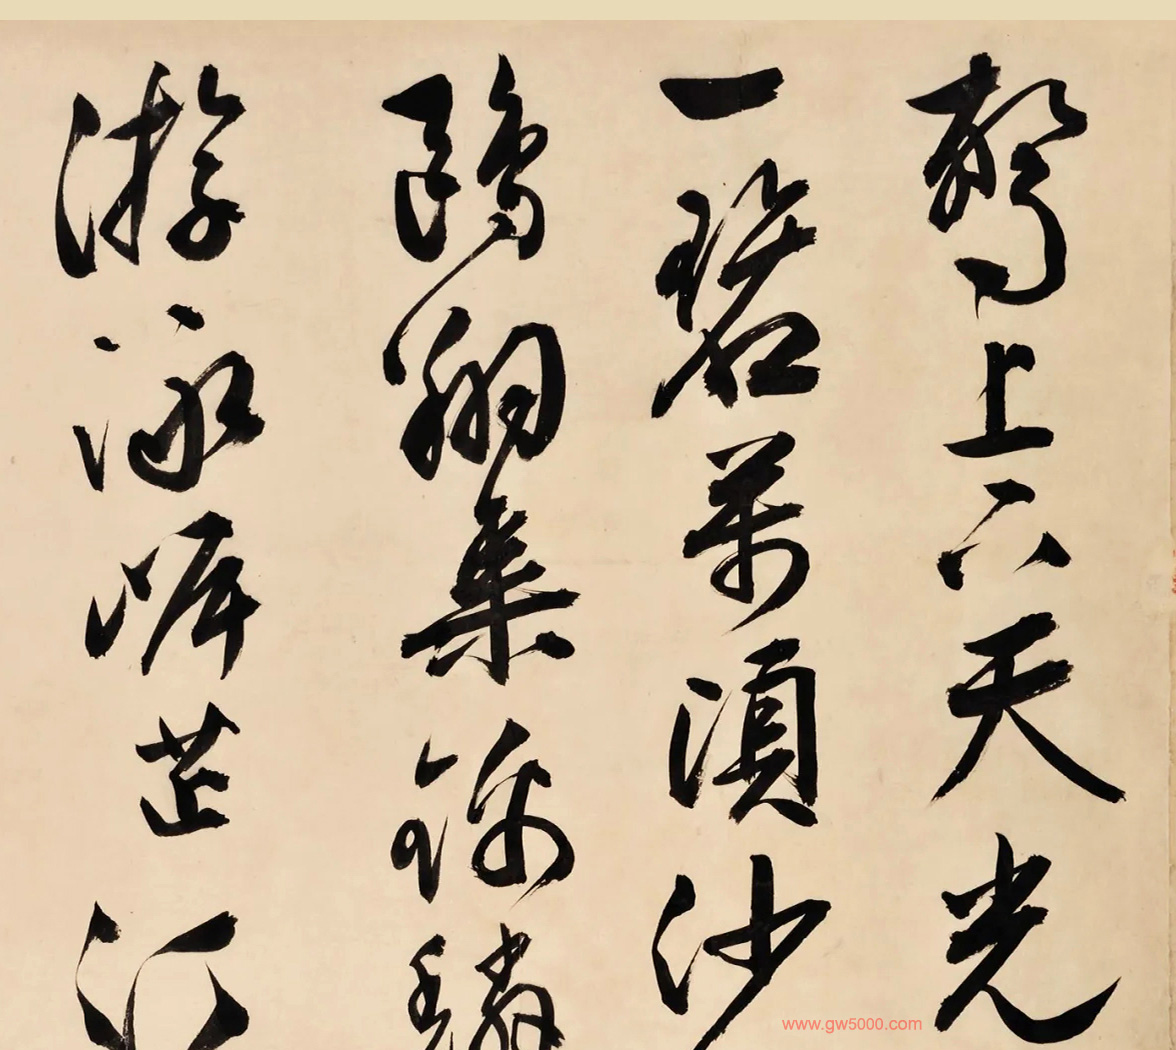 驚上下天光
一碧萬頃沙
鷗翔集錦鱗
游泳岸芷汀
www.gw5000.com